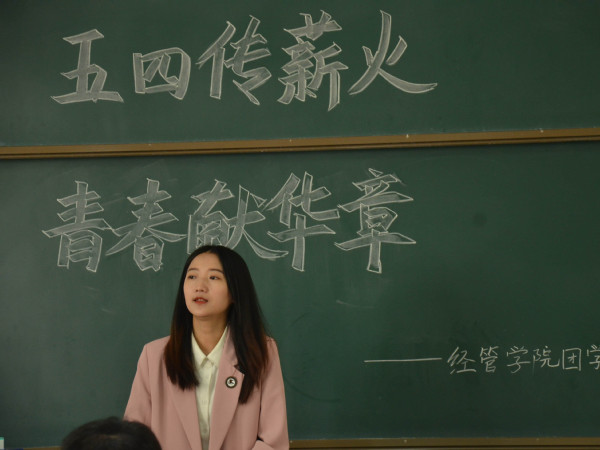 五四传薪火
青春献华章
——经管学院团学